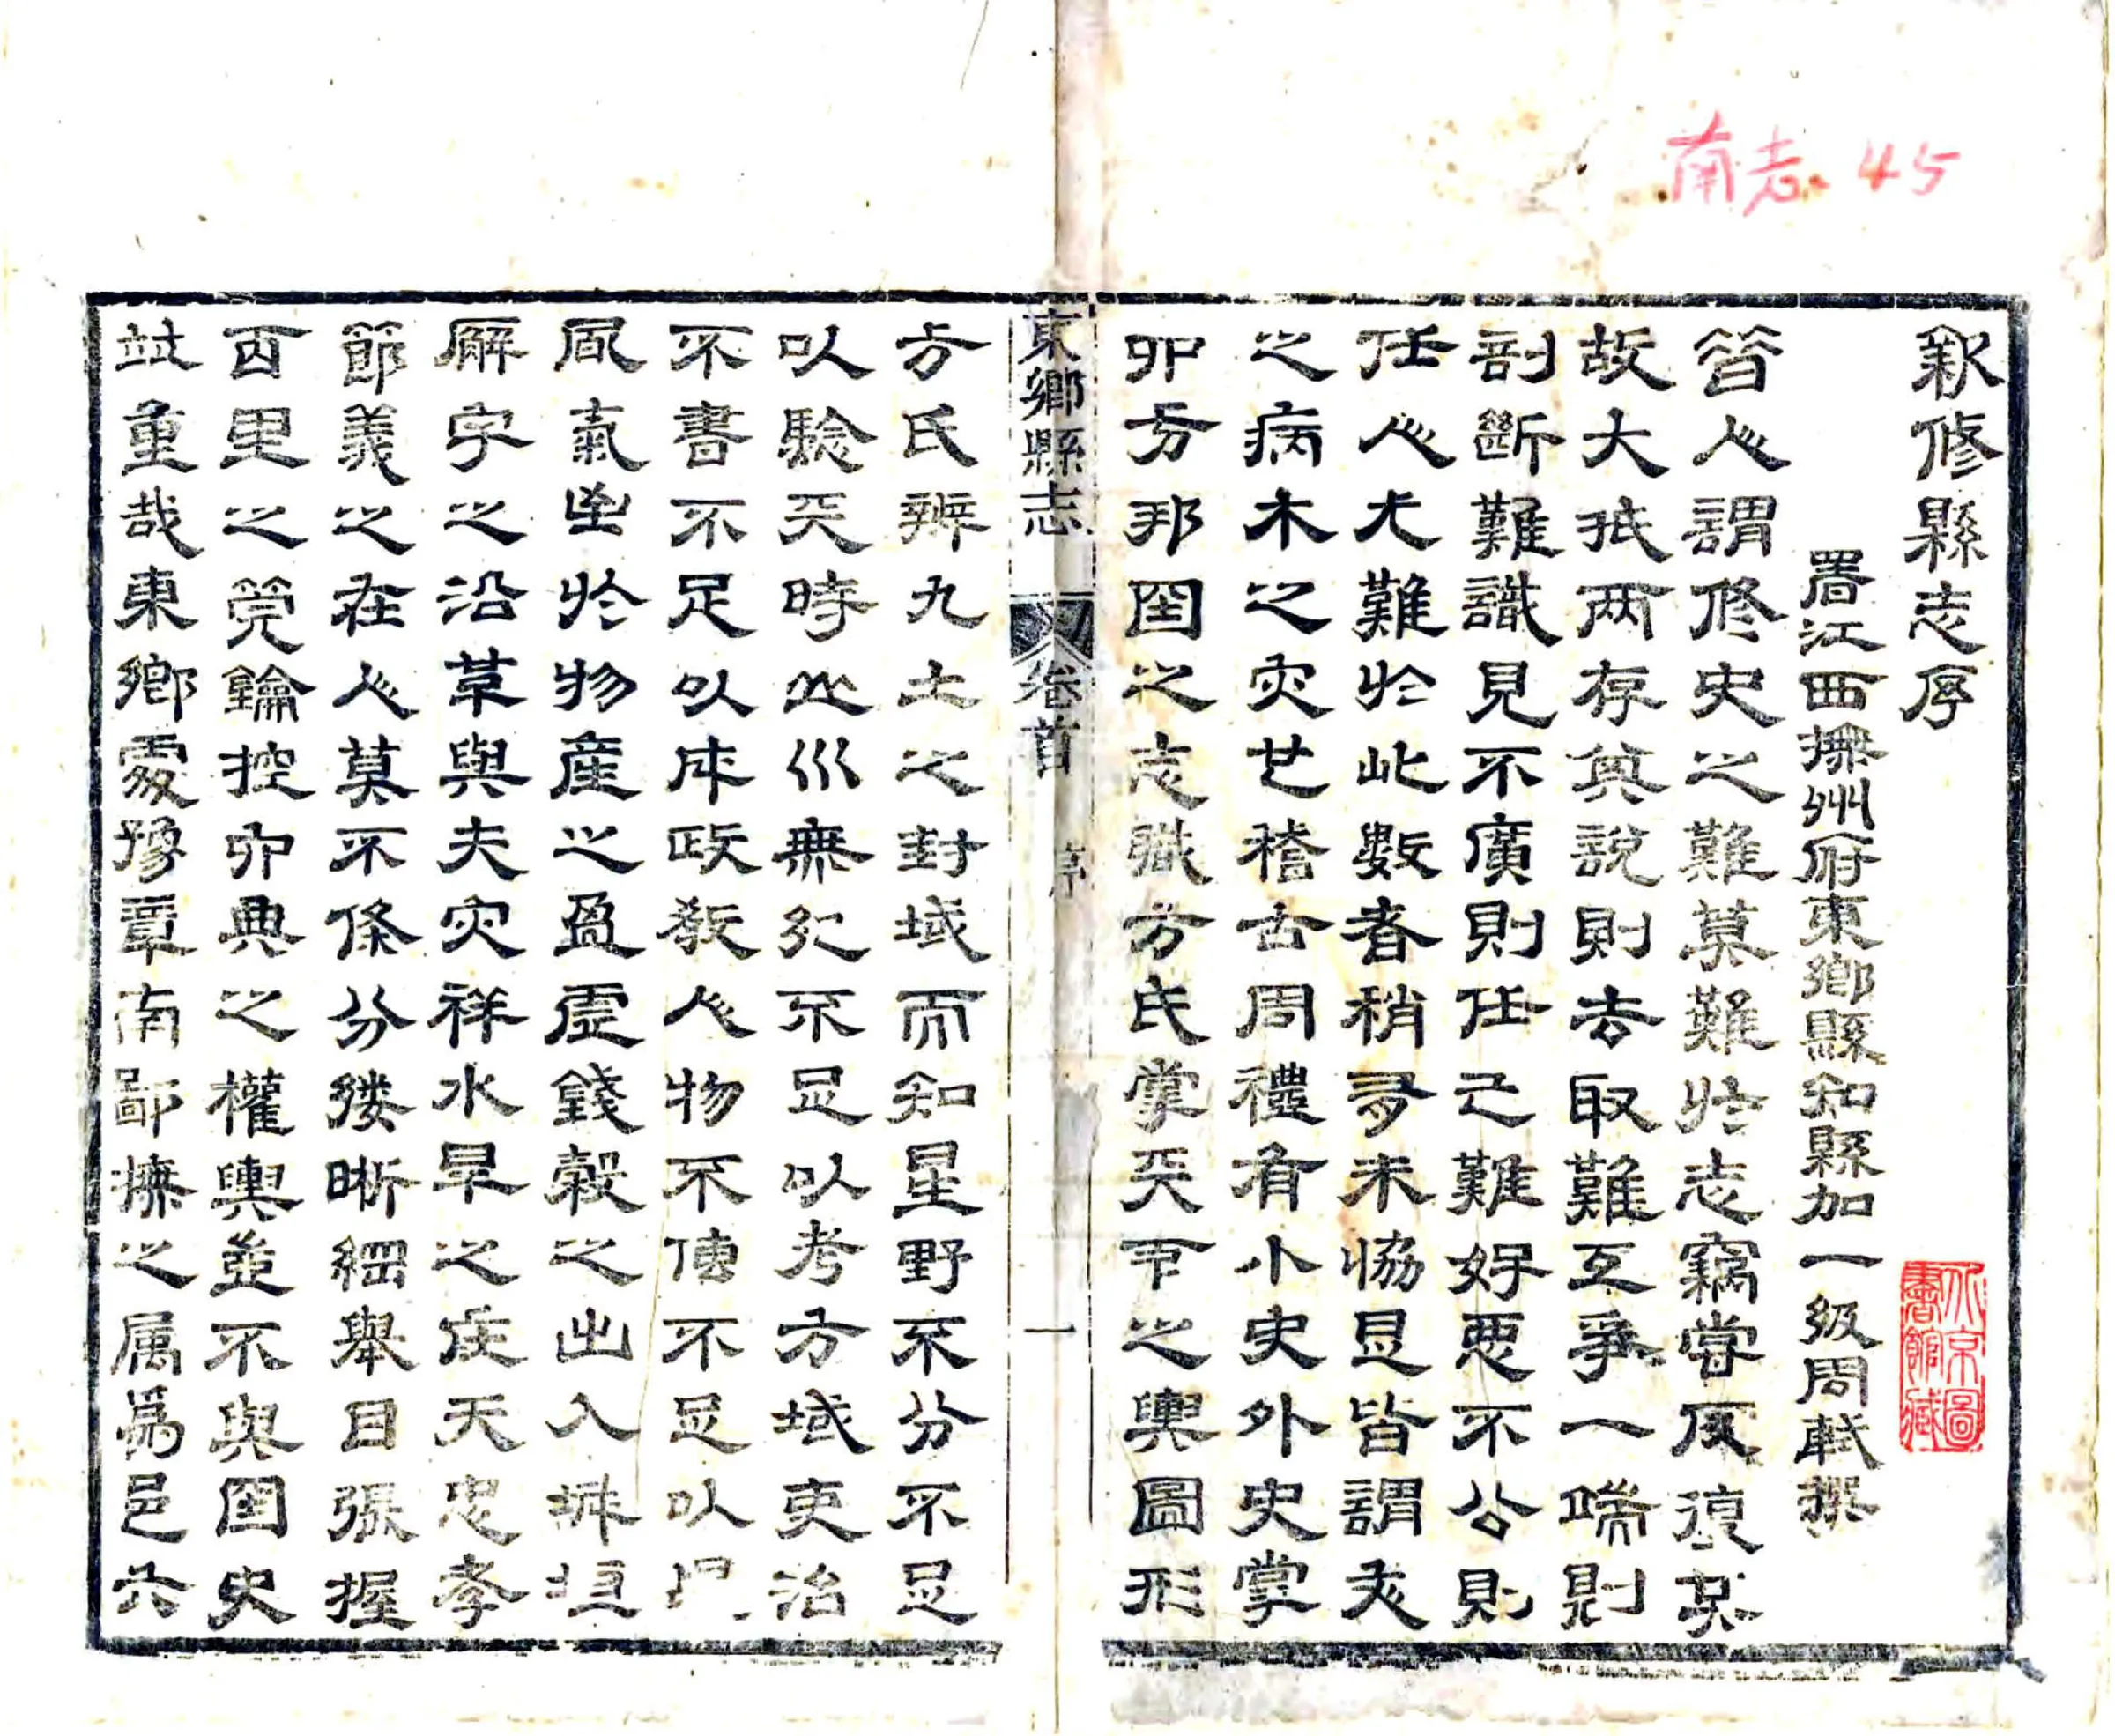 南志.45
新修縣志序
署江西撫州府東鄉縣知縣加一級周軾撰
昔人謂修史之難莫難於志竊嘗反復其
故大抵两存其說則去取難互爭一端則
剖斷難識見不廣則任己難好惡不公則
任人尤難於此數者稍有未協足皆謂文
之病木之灾世稽古周禮有小史外史掌
四方邦國之志職方氏掌天下之輿圖形
東鄉縣志 卷首 序 一
方氏辨九土之封域而知星野不分不足
以驗天時山川無紀不足以考方域吏治
不書不足以成政敎人物不傳不足以
風氣至於物產之盈虛錢穀之出入城垣
廨宇之沿革與夫灾祥水旱之在天忠孝
節義之在人莫不條分縷晰綱舉目張握
百里之筦鑰控四典之權輿並不與國史
並重哉東鄉處豫章南鄙撫之属爲邑六
北京圖書館藏